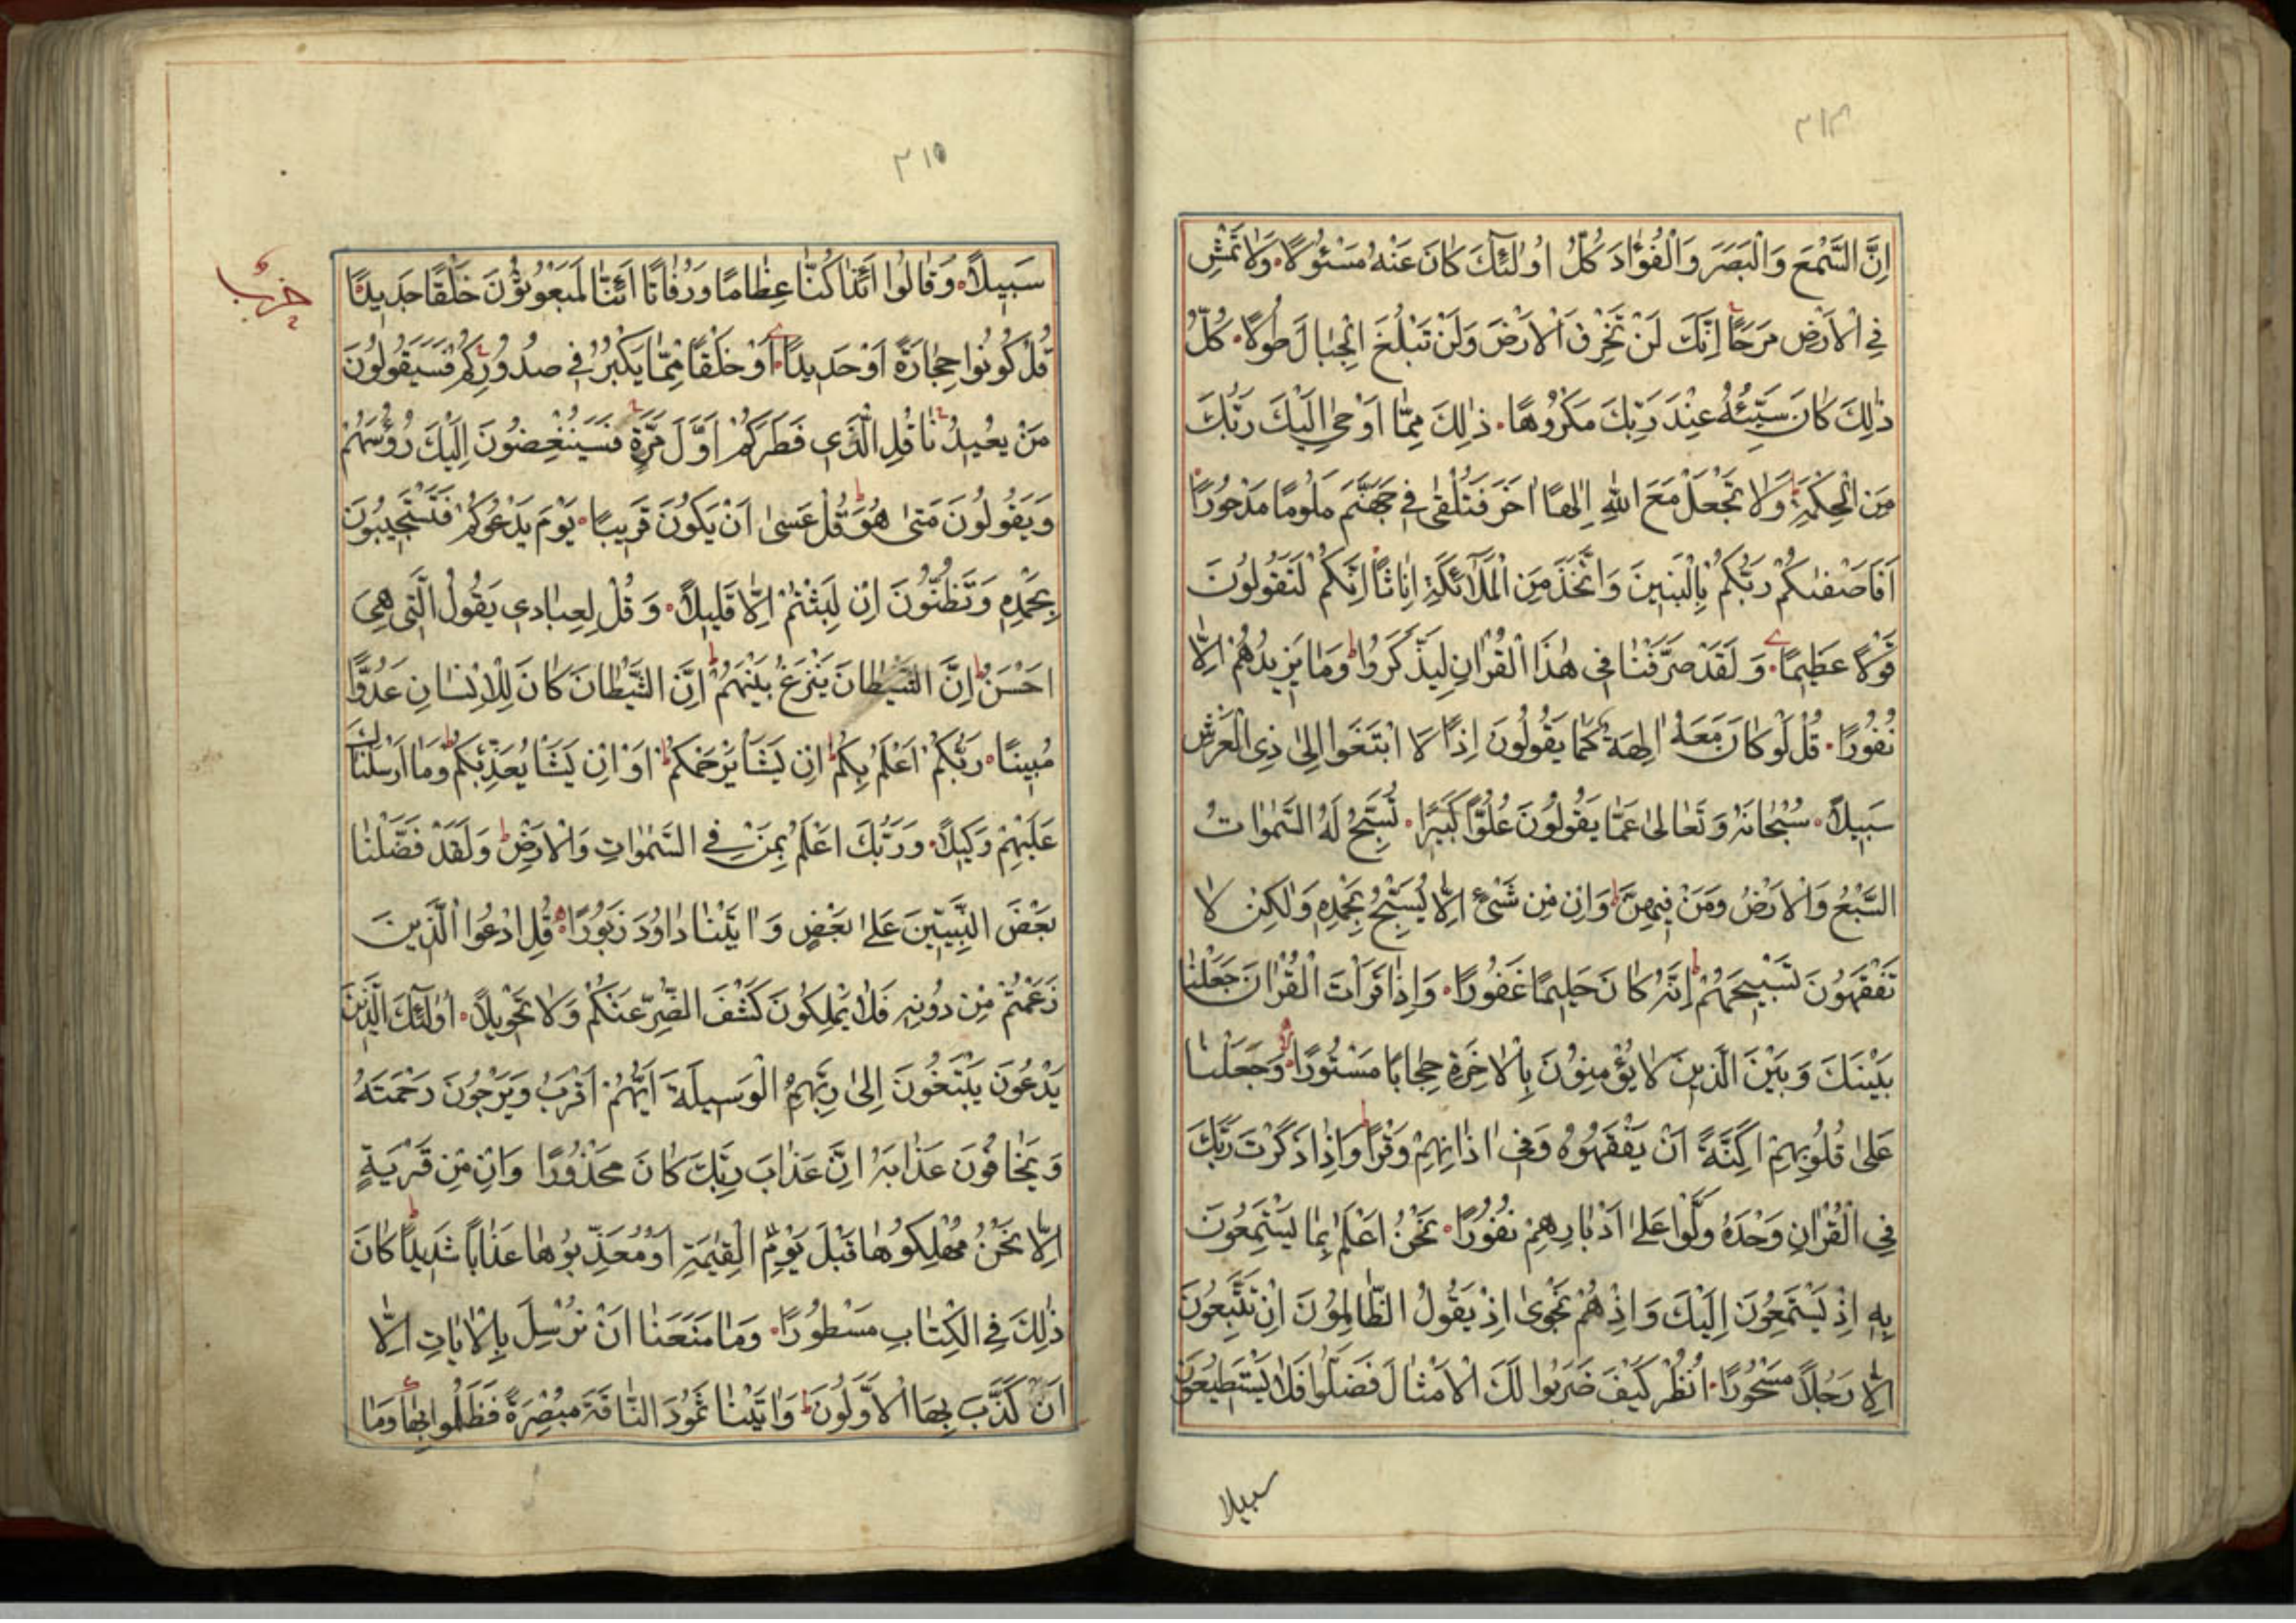 ٣١٤
اِنَّ السَّمْعَ وَالْبَصَرَ وَالْفُؤٰادَ كُلُّ اُولٰئِكَ كٰانَ عَنْهُ مَسْئُولًا وَلٰا تَمْشِ
فِي الْاَرْضِ مَرَحًا اِنَّكَ لَنْ تَخْرِقَ الْاَرْضَ وَلَنْ تَبْلُغَ الْجِبٰالَ طُولًا كُلُّ
ذٰلِكَ كٰانَ سَيِّئُهُ عِنْدَ رَبِّكَ مَكْرُوهًا ذٰلِكَ مِمّٰا اَوْحٰى اِلَيْكَ رَبُّكَ
مِنَ الْحِكْمَةِ وَلٰا تَجْعَلْ مَعَ اللهِ اِلٰهًا اٰخَرَ فَتُلْقٰى فِي جَهَنَّمَ مَلُومًا مَدْحُورًا
اَفَاَصْفٰىكُمْ رَبُّكُمْ بِالْبَنِينَ وَاتَّخَذَ مِنَ الْمَلٰٓائِكَةِ اِنٰاثًا اِنَّكُمْ لَتَقُولُونَ
قَوْلًا عَظِيمًا وَلَقَدْ صَرَّفْنٰا فِي هٰذَا الْقُرْاٰنِ لِيَذَّكَّرُوا وَمٰا يَزِيدُهُمْ اِلّٰا
نُفُورًا قُلْ لَوْ كٰانَ مَعَهُ اٰلِهَةٌ كَمٰا يَقُولُونَ اِذًا لَا ابْتَغَوْا اِلٰى ذِي الْعَرْشِ
سَبِيلًا سُبْحٰانَهُ وَتَعٰالٰى عَمّٰا يَقُولُونَ عُلُوًّا كَبِيرًا تُسَبِّحُ لَهُ السَّمٰوٰاتُ
السَّبْعُ وَالْاَرْضُ وَمَنْ فِيهِنَّ وَاِنْ مِنْ شَيْءٍ اِلّٰا يُسَبِّحُ بِحَمْدِهِ وَلٰكِنْ لٰا
تَفْقَهُونَ تَسْبِيحَهُمْ اِنَّهُ كٰانَ حَلِيمًا غَفُورًا وَاِذٰا قَرَاْتَ الْقُرْاٰنَ جَعَلْنٰا
بَيْنَكَ وَبَيْنَ الَّذِينَ لٰا يُؤْمِنُونَ بِالْاٰخِرَةِ حِجٰابًا مَسْتُورًا وَجَعَلْنٰا
عَلٰى قُلُوبِهِمْ اَكِنَّةً اَنْ يَفْقَهُوهُ وَفِي اٰذٰانِهِمْ وَقْرًا وَاِذٰا ذَكَرْتَ رَبَّكَ
فِي الْقُرْاٰنِ وَحْدَهُ وَلَّوْا عَلٰى اَدْبٰارِهِمْ نُفُورًا نَحْنُ اَعْلَمُ بِمٰا يَسْتَمِعُونَ
بِهِ اِذْ يَسْتَمِعُونَ اِلَيْكَ وَاِذْ هُمْ نَجْوٰى اِذْ يَقُولُ الظّٰالِمُونَ اِنْ تَتَّبِعُونَ
اِلّٰا رَجُلًا مَسْحُورًا اُنْظُرْ كَيْفَ ضَرَبُوا لَكَ الْاَمْثٰالَ فَضَلُّوا فَلٰا يَسْتَطِيعُونَ
سبيلا
٣١٥
سَبِيلًا وَقٰالُوا اَئِذٰا كُنّٰا عِظٰامًا وَرُفٰاتًا اَئِنّٰا لَمَبْعُوثُونَ خَلْقًا جَدِيدًا
قُلْ كُونُوا حِجٰارَةً اَوْ حَدِيدًا اَوْ خَلْقًا مِمّٰا يَكْبُرُ فِي صُدُورِكُمْ فَسَيَقُولُونَ
مَنْ يُعِيدُنٰا قُلِ الَّذِي فَطَرَكُمْ اَوَّلَ مَرَّةٍ فَسَيُنْغِضُونَ اِلَيْكَ رُؤُسَهُمْ
وَيَقُولُونَ مَتٰى هُوَ قُلْ عَسٰى اَنْ يَكُونَ قَرِيبًا يَوْمَ يَدْعُوكُمْ فَتَسْتَجِيبُونَ
بِحَمْدِهِ وَتَظُنُّونَ اِنْ لَبِثْتُمْ اِلّٰا قَلِيلًا وَقُلْ لِعِبٰادِي يَقُولُ الَّتِي هِيَ
اَحْسَنُ اِنَّ الشَّيْطٰانَ يَنْزَغُ بَيْنَهُمْ اِنَّ الشَّيْطٰانَ كٰانَ لِلْاِنْسٰانِ عَدُوًّا
مُبِينًا رَبُّكُمْ اَعْلَمُ بِكُمْ اِنْ يَشَاْ يَرْحَمْكُمْ اَوْ اِنْ يَشَاْ يُعَذِّبْكُمْ وَمٰا اَرْسَلْنٰاكَ
عَلَيْهِمْ وَكِيلًا وَرَبُّكَ اَعْلَمُ بِمَنْ فِي السَّمٰوٰاتِ وَالْاَرْضِ وَلَقَدْ فَضَّلْنٰا
بَعْضَ النَّبِيِّينَ عَلٰى بَعْضٍ وَاٰتَيْنٰا دٰاوُدَ زَبُورًا قُلِ ادْعُوا الَّذِينَ
زَعَمْتُمْ مِنْ دُونِهِ فَلٰا يَمْلِكُونَ كَشْفَ الضُّرِّ عَنْكُمْ وَلٰا تَحْوِيلًا اُولٰئِكَ الَّذِينَ
يَدْعُونَ يَبْتَغُونَ اِلٰى رَبِّهِمُ الْوَسِيلَةَ اَيُّهُمْ اَقْرَبُ وَيَرْجُونَ رَحْمَتَهُ
وَيَخٰافُونَ عَذٰابَهُ اِنَّ عَذٰابَ رَبِّكَ كٰانَ مَحْذُورًا وَاِنْ مِنْ قَرْيَةٍ
اِلّٰا نَحْنُ مُهْلِكُوهٰا قَبْلَ يَوْمِ الْقِيٰمَةِ اَوْ مُعَذِّبُوهٰا عَذٰابًا شَدِيدًا كٰانَ
ذٰلِكَ فِي الْكِتٰابِ مَسْطُورًا وَمٰا مَنَعَنٰا اَنْ نُرْسِلَ بِالْاٰيٰاتِ اِلّٰا
اَنْ كَذَّبَ بِهَا الْاَوَّلُونَ وَاٰتَيْنٰا ثَمُودَ النّٰاقَةَ مُبْصِرَةً فَظَلَمُوا بِهٰا وَمٰا